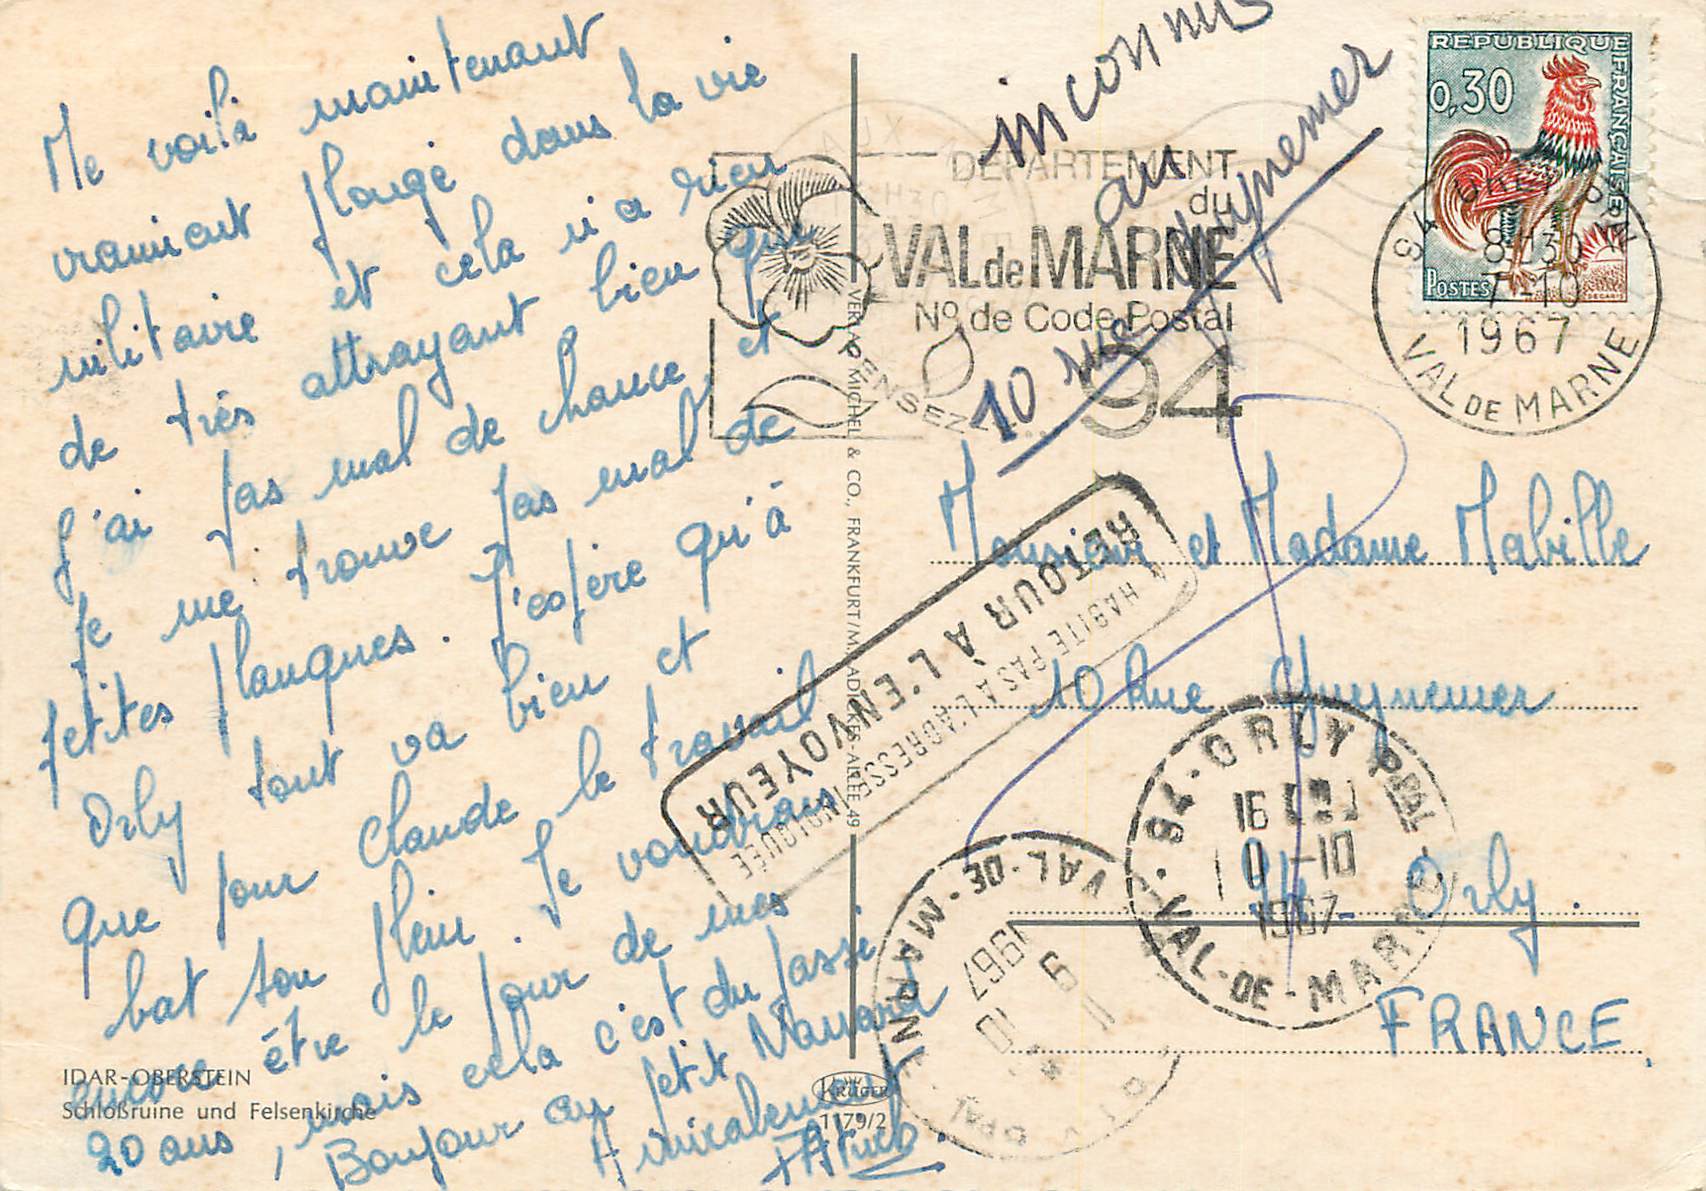 Me voilà maintenant
vraiment plongé dans la vie
militaire et cela n'a rien
de très attrayant bien que
j'ai pas mal de chance et
je me trouve pas mal de
petites planques. J'espère qu'à
Orly tout va bien et
que pour Claude le travail
bat son plein. Je voudrais
encore être le jour de mes
20 ans, mais cela c'est du passé.
Bonjour au petit Manard
Amicalement
IDAR-OBERSTEIN
Schloßruine und Felsenkirche
VERLAG MICHEL & CO., FRANKFURT/M., ADICKES-ALLEE 49
KRÜGER
1179/2
inconnus
au
10 rue Guynemer
DÉPARTEMENT
du
VAL de MARNE
No de Code Postal
94
PENSEZ...
REPUBLIQUE FRANÇAISE
0,30
POSTES
DECARIS
94 ORLY PPAL
8H30
7-10
1967
VAL DE MARNE
RETOUR À L'ENVOYEUR
N'HABITE PAS À L'ADRESSE INDIQUÉE
Monsieur et Madame Mabille
10 Rue Guynemer
94- Orly.
FRANCE.
94-ORLY PPAL
16
-10
1967
VAL-DE-MARNE
VAL-DE-MARNE
1967
9
10
11